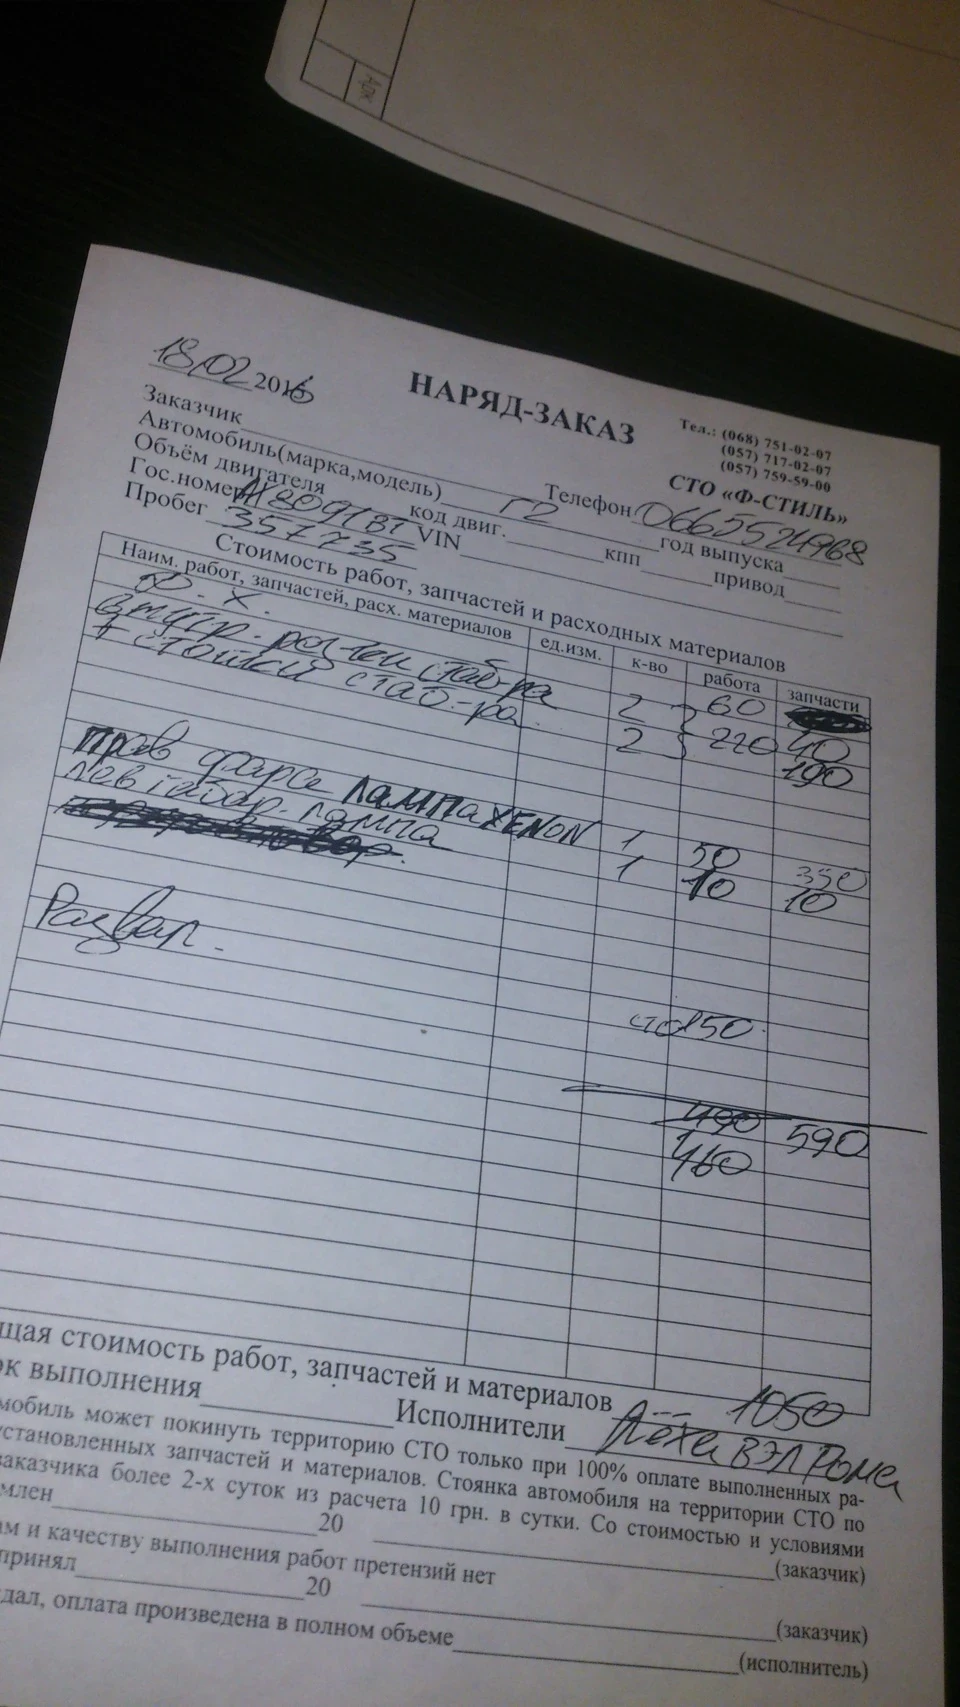 18,02 2016
НАРЯД-ЗАКАЗ
Тел.: (068) 751-02-07
(057) 717-02-07
(057) 759-59-00
СТО «Ф-СТИЛЬ»
Заказчик Телефон 0665524968
Автомобиль(марка,модель) год выпуска
Объём двигателя код двиг. Г2 кпп привод
Гос.номер 8091 ВТ VIN
Пробег 357735
Стоимость работ, запчастей и расходных материалов
Наим. работ, запчастей, расх. материалов ед.изм. к-во работа запчасти
Ф. Х. 60
втулк. стаб-ра 2 220 40
+ стойки стаб.-ра 2 190
прав фара лампа XENON 1 50 350
лев габар. лампа 1 10 10
Развал. 150
490 590
460
щая стоимость работ, запчастей и материалов 1050
ок выполнения Исполнители Лёха ВЭЛ Рома
мобиль может покинуть территорию СТО только при 100% оплате выполненных ра-
установленных запчастей и материалов. Стоянка автомобиля на территории СТО по
заказчика более 2-х суток из расчета 10 грн. в сутки. Со стоимостью и условиями
млен 20 (заказчик)
ам и качеству выполнения работ претензий нет
принял 20 (заказчик)
дал, оплата произведена в полном объеме (исполнитель)